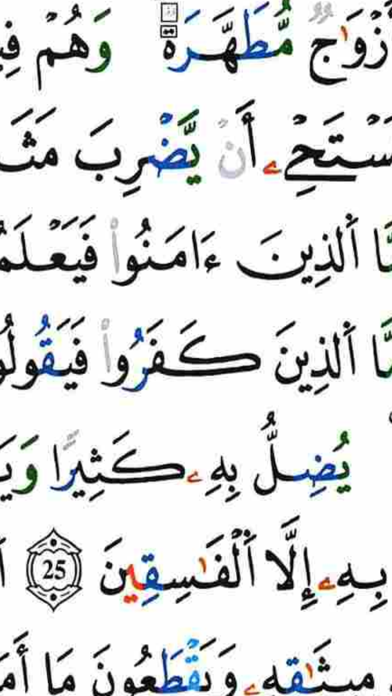 أَزْوَٰجٌ مُّطَهَّرَةٌ وَهُمْ فِي
يَسْتَحْيِۦ أَن يَضْرِبَ مَثَ
ا ٱلَّذِينَ ءَامَنُوا۟ فَيَعْلَمُ
ا ٱلَّذِينَ كَفَرُوا۟ فَيَقُولُو
يُضِلُّ بِهِۦ كَثِيرًا وَيَ
بِهِۦٓ إِلَّا ٱلْفَٰسِقِينَ 25 ٱ
مِيثَٰقِهِۦ وَيَقْطَعُونَ مَآ أَمَ